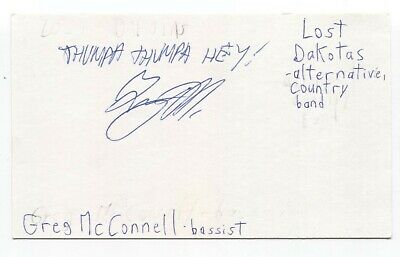 Lost
Dakotas
-alternative,
country
band
THUMPA THUMPA HEY!
Greg McConnell - bassist